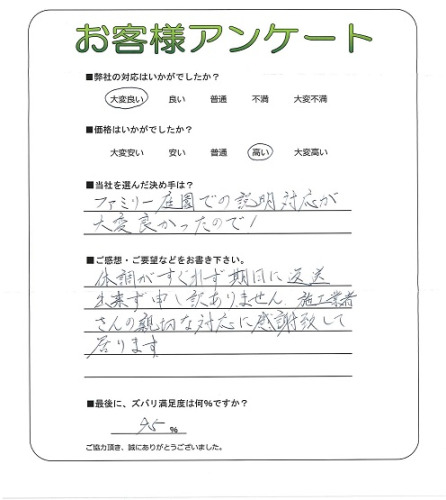 お客様アンケート
■弊社の対応はいかがでしたか？
大変良い 良い 普通 不満 大変不満
■価格はいかがでしたか？
大変安い 安い 普通 高い 大変高い
■当社を選んだ決め手は？
ファミリー庭園での説明対応が
大変良かったので！
■ご感想・ご要望などをお書き下さい。
体調がすぐれず期日に返送
出来ず申し訳ありません 施工業者
さんの親切な対応に感謝致して
居ります
■最後に、ズバリ満足度は何％ですか？
95 %
ご協力頂き、誠にありがとうございました。